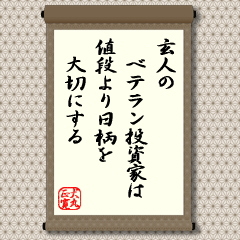 玄人の
ベテラン投資家は
値段より日柄を
大切にする